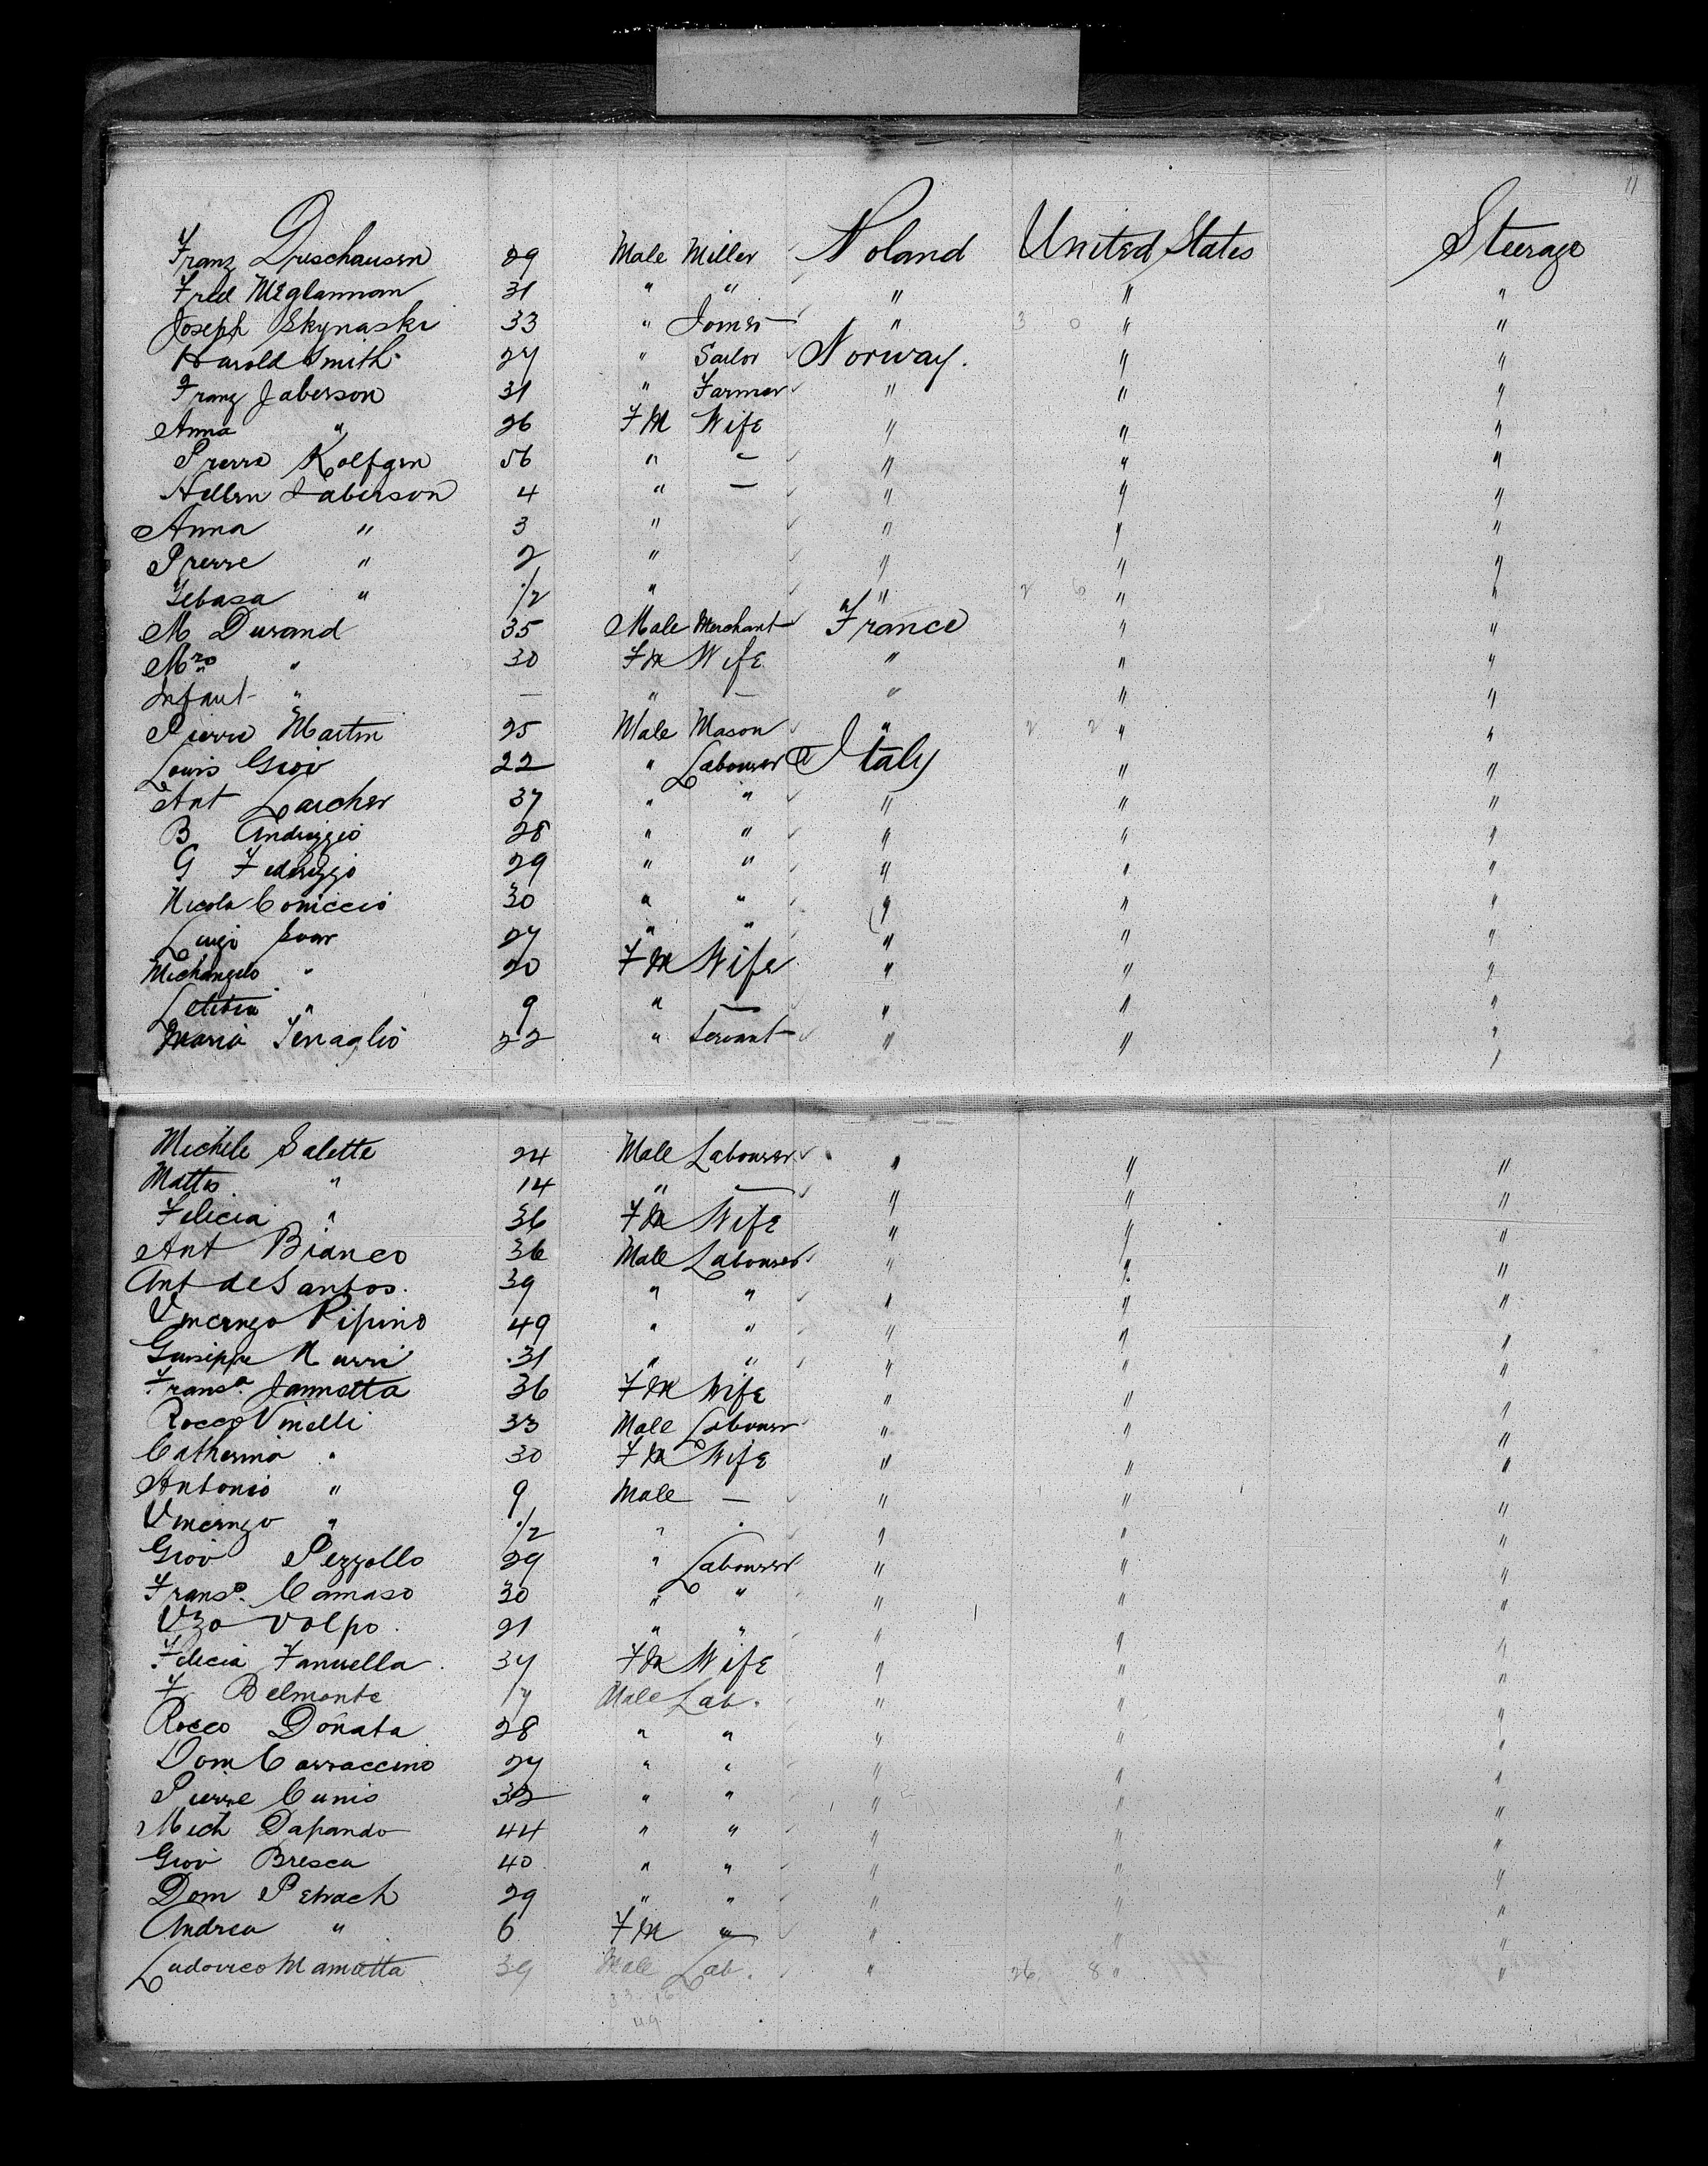 11
Franz Drieschausen 29 Male Miller Noland United States Steerage
Fred McGlannan 31 " " " " "
Joseph Skynaski 33 " Joiner " 3 0 " "
Harold Smith 27 " Sailor Norway. " "
Franz Jaberson 31 " Farmer " " "
Anna " 26 FM Wife " " "
Prerre Kolfgen 56 " - " " "
Hellen Jaberson 4 " - " " "
Anna " 3 " " " "
Prerre " 2 " " " "
Gebasa " 1/2 " " 2 6 " "
M Durand 35 Male Merchant France " "
Mrs " 30 FM Wife " " "
Infant " - " - " " "
Pierre Martin 25 Male Mason " 2 2 " "
Louis Giov 22 " Labourer Italy " "
Ant Larcher 37 " " " " "
B Andrizzio 28 " " " " "
G Fedrizzo 29 " " " " "
Nicola Coniccio 30 " " " " "
Luigi 27 " " " " "
Michangelo " 20 FM Wife " " "
Letitia " 9 " - " " "
Maria Tenaglio 22 " Servant " " "
Michele Salette 24 Male Labourer " " "
Matteo " 14 " - " " "
Felicia " 36 FM Wife " " "
Ant Bianco 36 Male Labourer " " "
Ant de Santos. 39 " " " " "
Vincenzo Pipino 49 " " " " "
Guiseppe Nurri 31 " " " " "
Fransa. Jannatta 36 FM Wife " " "
Rocco Vinelli 33 Male Labourer " " "
Catherina " 30 FM Wife " " "
Antonio " 9 Male - " " "
Vincenzo " 1/2 " " " "
Giov Pezzollo 29 " Labourer " " "
Franso. Camaso 30 " " " " "
Vzo Volpo. 21 " " " " "
Felicia Fanuella. 37 FM Wife " " "
F Belmonte 17 Male Lab. " " "
Rocco Donata 28 " " " " "
Dom Carraccino 27 " " " " "
Pierre Cunio 32 " " " " "
Mich Dapando 44 " " " " "
Giov Bresca 40 " " " " "
Dom Petrach 29 " " " " "
Andrea " 6 FM " " " "
Ludovico Mamatta 39 Male Lab. " 26 8 " "
33 16
49